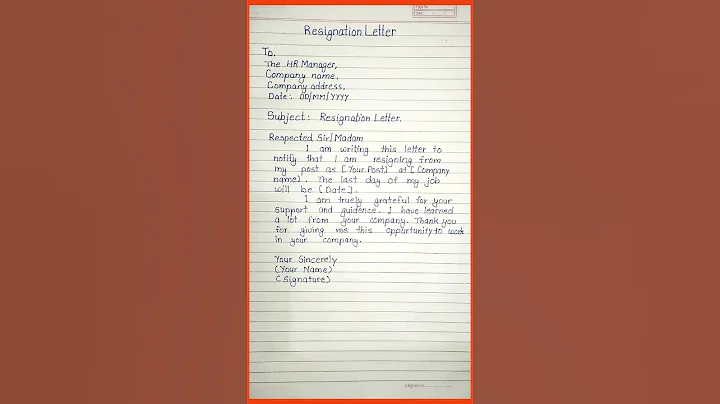 Page No.
Date:
Resignation Letter
To,
The HR Manager,
Company name,
Company address,
Date: DD/MM/YYYY
Subject: Resignation Letter.
Respected Sir/Madam
I am writing this letter to
notify that I am resigning from
my post as [Your Post] at [Company
name]. The last day of my job
will be [Date].
I am truely grateful for your
support and guidence. I have learned
a lot from your company. Thank you
for giving me this opportunity to work
in your company.
Your Sincerely
(Your Name)
(Signature)